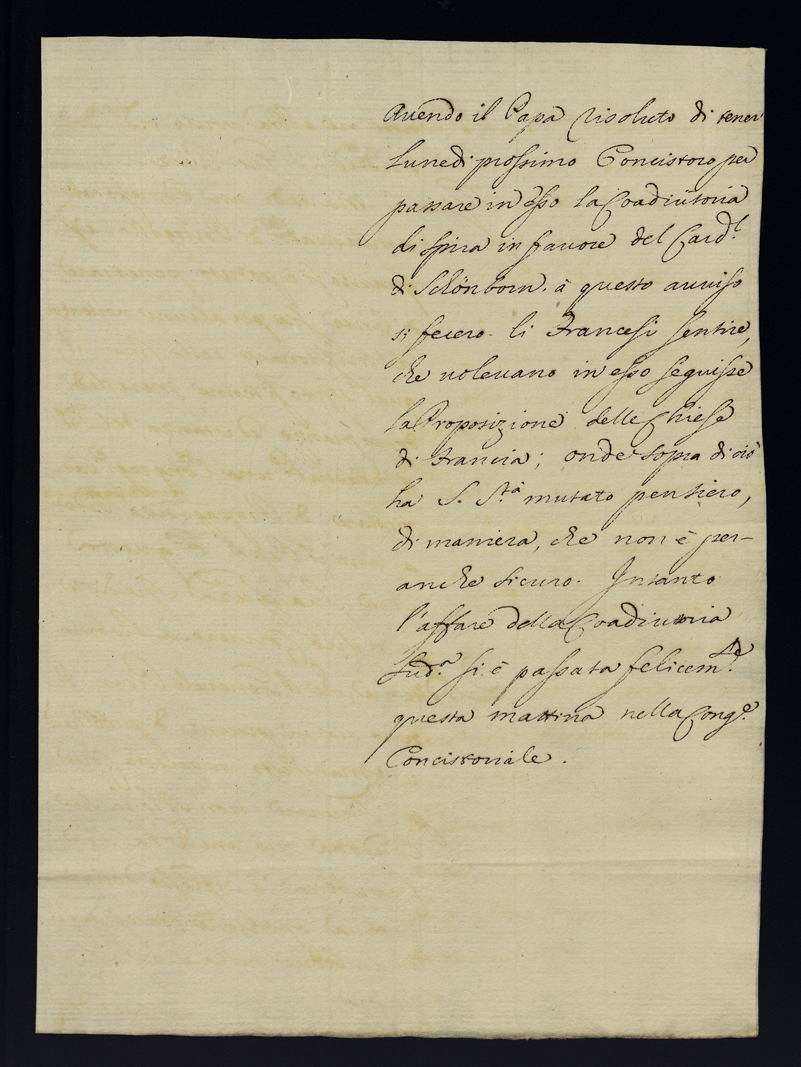 Avendo il Papa risoluto di tener
Lunedi prossimo Concistoro per
passare in esso la Coadiutoria
di Spira in favore del Card.l
di Schönborn. à questo avviso
si fecero li Francesi sentire,
che volevano in esso seguisse
la Proposizione delle Chiese
di Francia; onde sopra di ciò
ha S. S.tà mutato pensiero,
di maniera, che non è per-
anche sicuro. Intanto
l'affare della Coadiutoria
sud.a si è passata felicem.te
questa mattina nella Cong.e
Concistoriale.